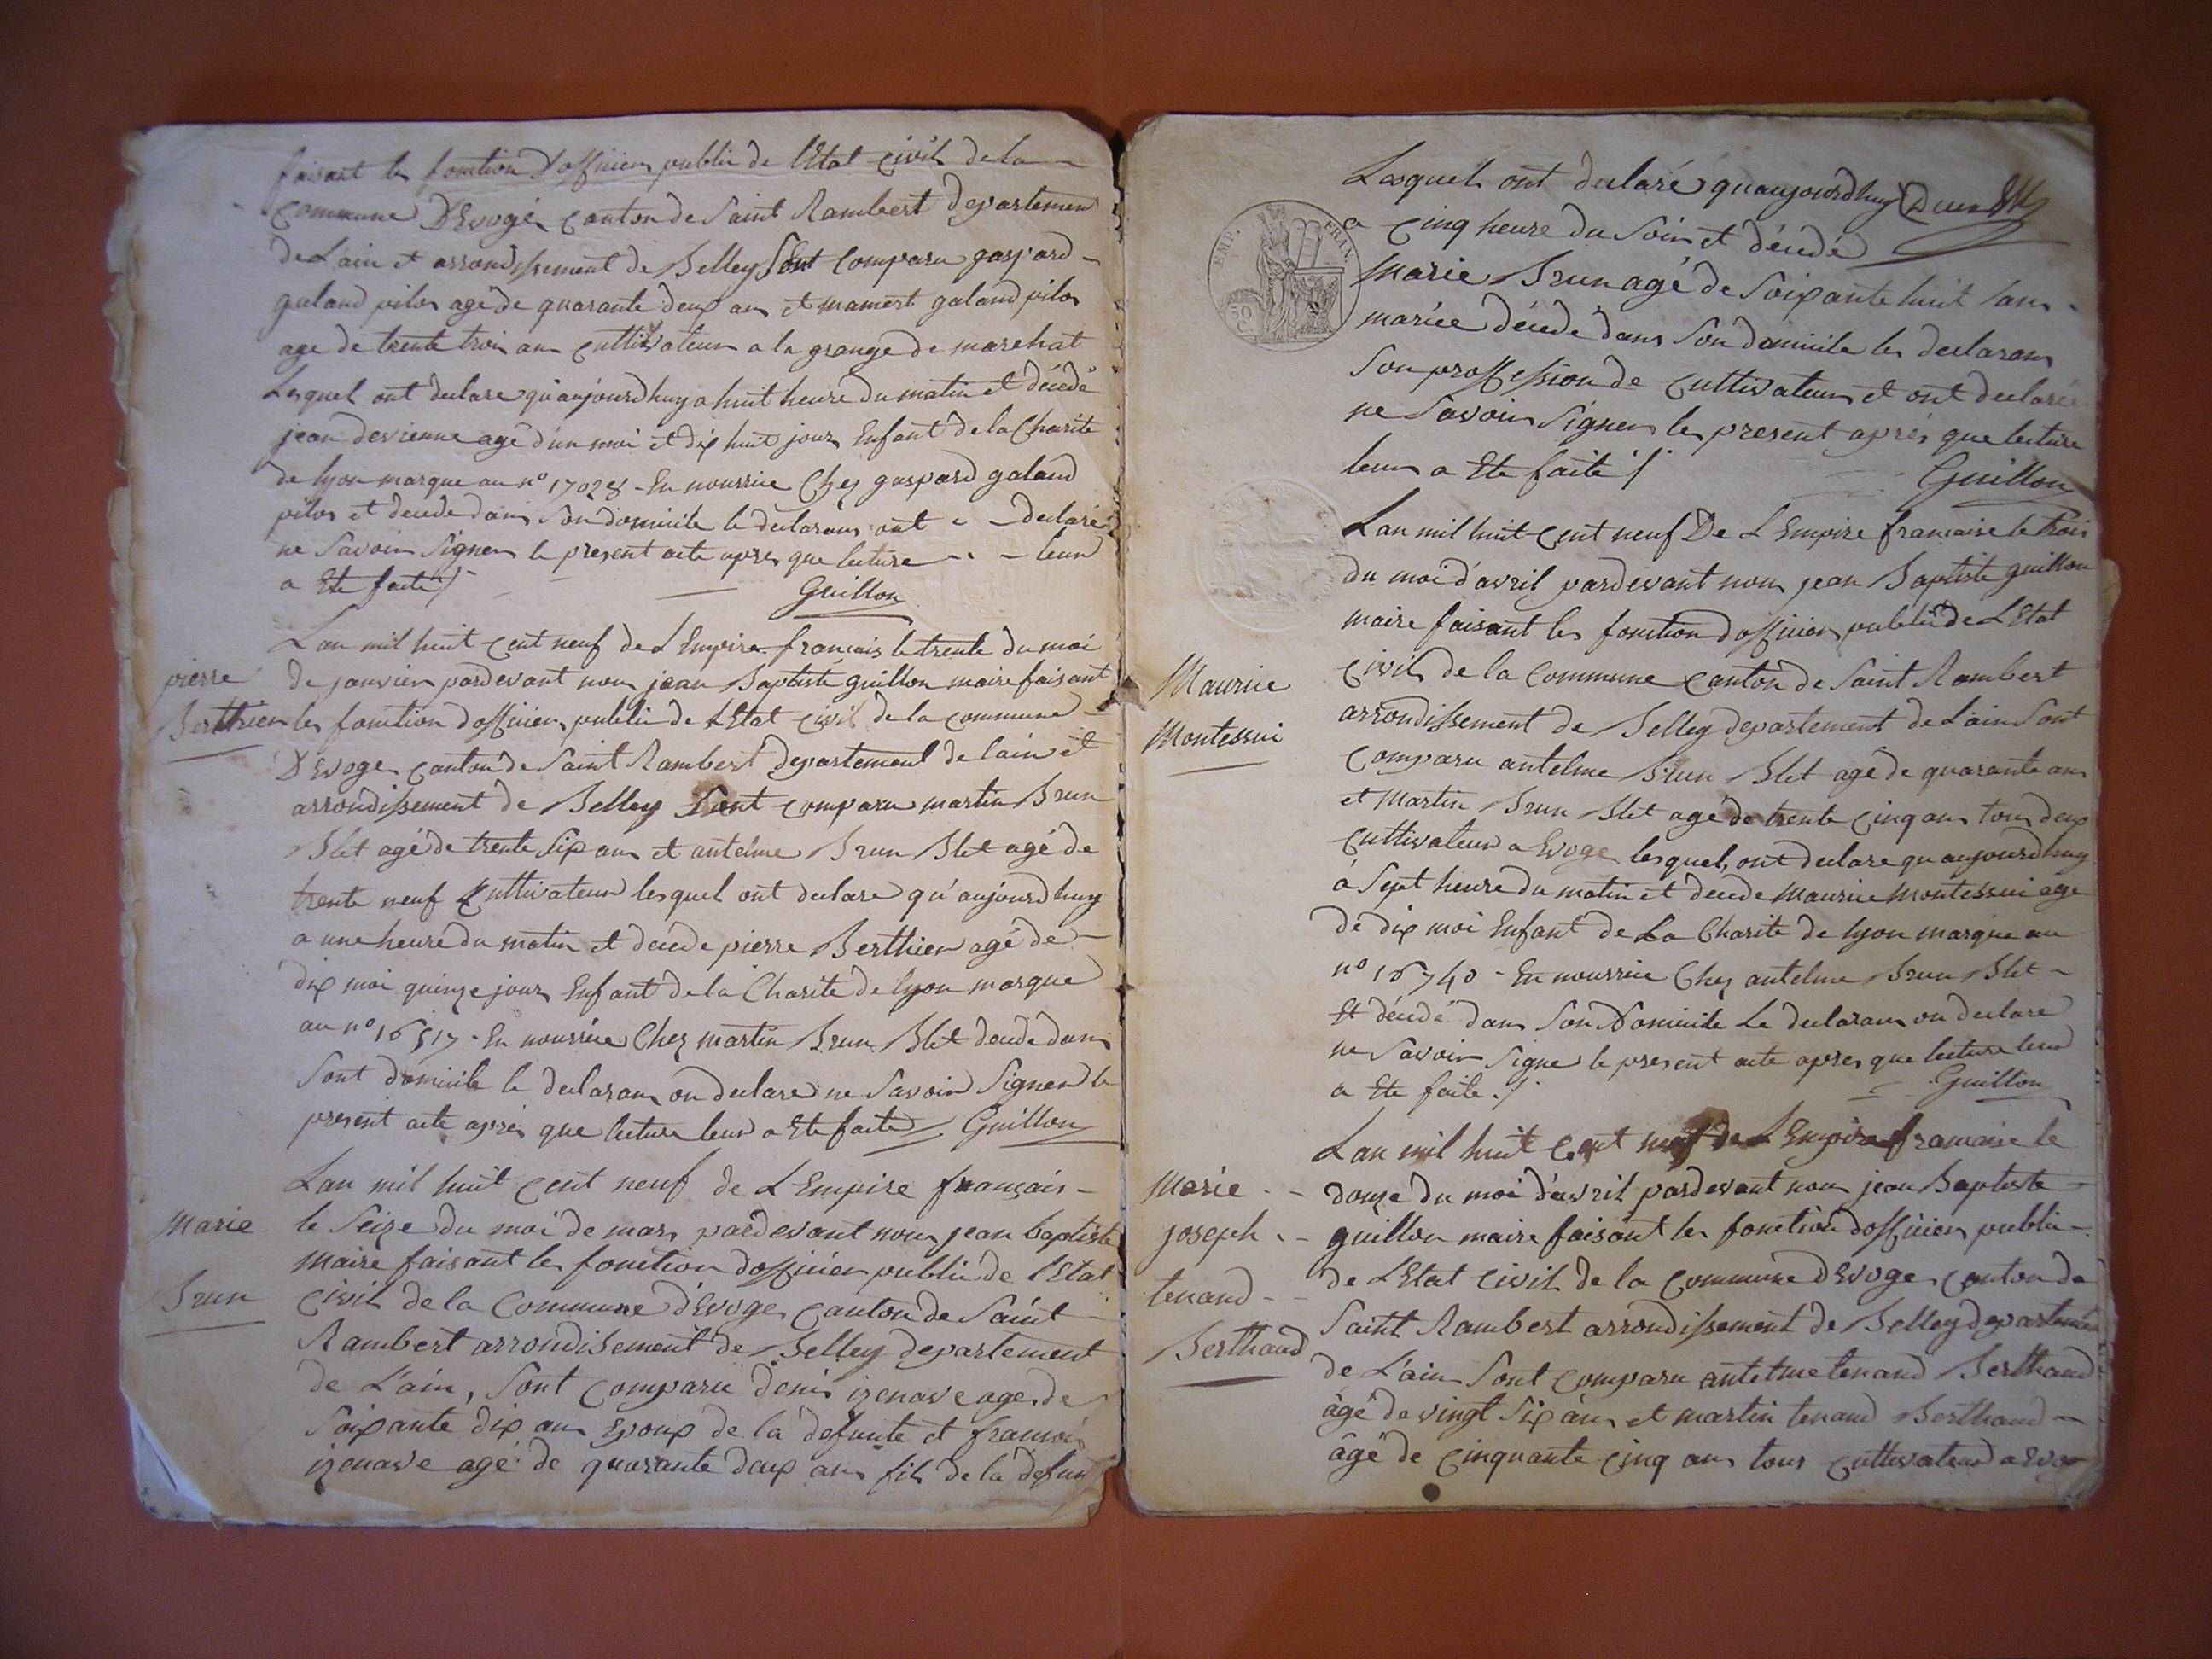 faisant les fonction D'officier public de l'Etat civil de la
commune D'Evoge canton de Saint Rambert departemen
de L'ain et arrondissement de Belley Sont comparu gaspard
galand pilos agé de quarante deux ans et mamert galand pilos
age de trente trois ans cultivateur a la grange de marchat
Lesquel ont declare qu'aujourd'huy a huit heure du matin et décédé
jean devienne agé d'un moi et dix huit jours Enfant de la Charite
de lyon marque au n° 17028 - En nourrice Chez gaspard galand
pilos et decede dans Son domicile le declarans ont declaré
ne Savoir Signer le present acte apres que lecture leur
a Ete faite /
Guillon
L'an mil huit cent neuf de L'Empire francais le trente du moi
pierre de janvier pardevant nous jean Baptiste guillon maire faisant
Berthier les fonction d'officier public de L'Etat civil de la commune
D'Evoge canton de Saint Rambert departement de l'ain et
arrondissement de Belley Sont comparu martin Brun
Blet agé de trente Six ans et antelme Brun Blet agé de
trente neuf Cultivateur lesquel ont declare qu'aujourd'huy
a une heure du matin et decede pierre Berthier agé de
dix moi quinze jours Enfant de la Charite de lyon marque
au n° 16517 - En nourrice Chez martin Brun Blet decede dans
Sont domicile le declarans on declare ne Savoir Signer le
present acte aprés que lecture leur a Ete faite / Guillon
L'an mil huit cent neuf de L'Empire français
Marie le Seize du moi de mars pardevant nous jean baptiste
Maire faisant les fonction d'officier public de l'Etat
Brun civil de la Commune d'Evoge canton de Saint
Rambert arrondisement de Belley departement
de L'ain, Sont comparu denis izenave age de
Soixante dix ans Epoux de la defunte et francois
izenave agé de quarante deux ans fils de la defun
Lesquels ont declaré qu'aujourdhuy
EMP. FRAN.
50 C.
a cinq heure du Soir et décedé
Marie Brun agé de Soixante huit ans
mariée décedé dans Son domicile les declarans
Son proffession de cultivateur et ont declaré
ne Savoir Signer les present aprés que lecture
leur a Ete faite /
Guillon
L'an mil huit cent neuf De L'Empire francaise le trois
du moi d'avril pardevant nous jean Baptiste guillon
maire faisant les fonction d'officier public de L'Etat
Maurice civil de la Commune canton de Saint Rambert
Montessui arrondissement de Belley departement de L'ain Sont
comparu antelme Brun Blet agé de quarante ans
et Martin Brun Blet agé de trente cinq ans tous deux
cultivateur a Evoge lesquel, ont declare qu'aujourdhuy
à Sept heure du matin et decede Maurice Montessui age
de dix moi Enfant de La Charite de lyon marque au
n° 16740 - En nourrice Chez antelme Brun Blet
Et décédé dans Son Domicile Le declarans on declare
ne Savoir Signe le present acte apres que lecture leur
a Ete faite. /
Guillon
L'an mil huit cent neuf de L'Empire francaise le
Marie douze du moi d'avril pardevant nous jean Baptiste
joseph guillon maire faisant les fonction d'officier public
tenand de L'Etat civil de la commune d'Evoge canton de
Saint Rambert arrondissement de Belley departemen
Berthaud de L'ain Sont comparu antelme tenand Berthaud
âgé de vingt Six ans et martin tenand Berthaud
âgé de cinquante cinq ans tous cultivateur a Evo